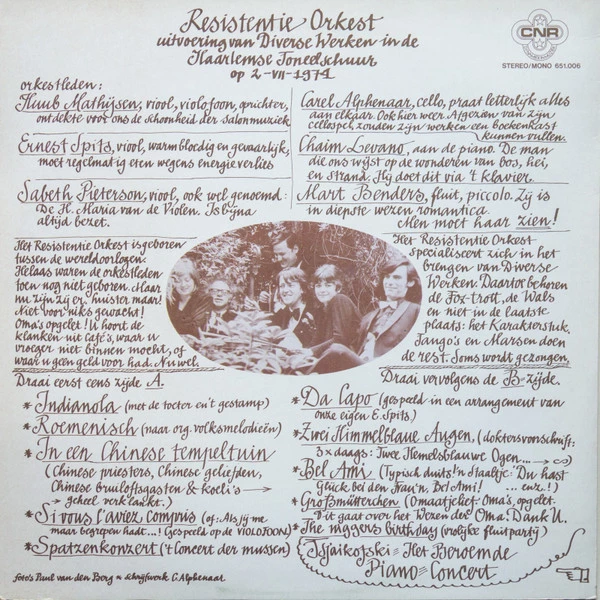 Resistentie Orkest
uitvoering van Diverse Werken in de
Haarlemse Toneelschuur
op 2-VII-1974
CNR
STEREO/MONO 651.006
orkestleden:
Huub Mathijsen, viool, violofoon, oprichter,
ontdekte voor ons de schoonheid der salonmuziek
Ernest Spits, viool, warmbloedig en gevaarlijk,
moet regelmatig eten wegens energieverlies
Sabeth Pieterson, viool, ook wel genoemd:
De H. Maria van de Violen. Is bijna
altijd bezet.
Carel Alphenaar, cello, praat letterlijk alles
aan elkaar. Ook hier weer. Afgezien van zijn
cellospel, zouden zijn werken een boekenkast
kunnen vullen.
Chaim Levano, aan de piano. De man
die ons wijst op de wonderen van bos, hei,
en strand. Hij doet dit via 't klavier.
Mart Benders, fluit, piccolo. Zij is
in diepste wezen romantica.
Men moet haar zien!
Het Resistentie Orkest is geboren
tussen de wereldoorlogen.
Helaas waren de orkestleden
toen nog niet geboren. Maar
nu zijn zij er, luister maar!
Niet voor niks gewacht!
Oma's opgelet! U hoort de
klanken uit café's, waar u
vroeger niet binnen mocht, of
waar u geen geld voor had. Nu wel.
Het Resistentie Orkest
specialiseert zich in het
brengen van Diverse
Werken. Daartoe behoren
de Fox-trott, de Wals
en niet in de laatste
plaats: het Karakterstuk.
Tango's en Marsen doen
de rest. Soms wordt gezongen.
Draai eerst eens zijde A.
* Indianola (met de toeter en 't gestamp)
* Roemenisch (naar org. volksmelodieën)
* In een Chinese tempeltuin
(Chinese priesters, Chinese geliefden,
Chinese bruiloftsgasten & koeli's →
→ geheel verklankt.)
* Si vous l'aviez compris (of: Als jij me
maar begrepen hadt...! (gespeeld op de VIOLOFOON)
* Spatzenkonzert ('t Concert der mussen)
Draai vervolgens de B-zijde.
* Da Capo (gespeeld in een arrangement van
onze eigen E. Spits)
* Zwei Himmelblaue Augen, (doktersvoorschrift:
3 x daags: Twee Hemelsblauwe Ogen...→ ∞)
* Bel Ami (Typisch duits!'n Staaltje: 'Du hast
Glück bei den Frau'n, Bel Ami! ... enz.!)
* Großmütterchen (Omaatjelief: Oma's, opgelet.
Dit gaat over het Wezen der Oma. Dank U.
* The niggers birthday (vrolijke fluitpartij)
Tsjaikofski = Het Beroemde
Piano = Concert
foto's Paul van den Borg & schrijfwerk C. Alphenaar